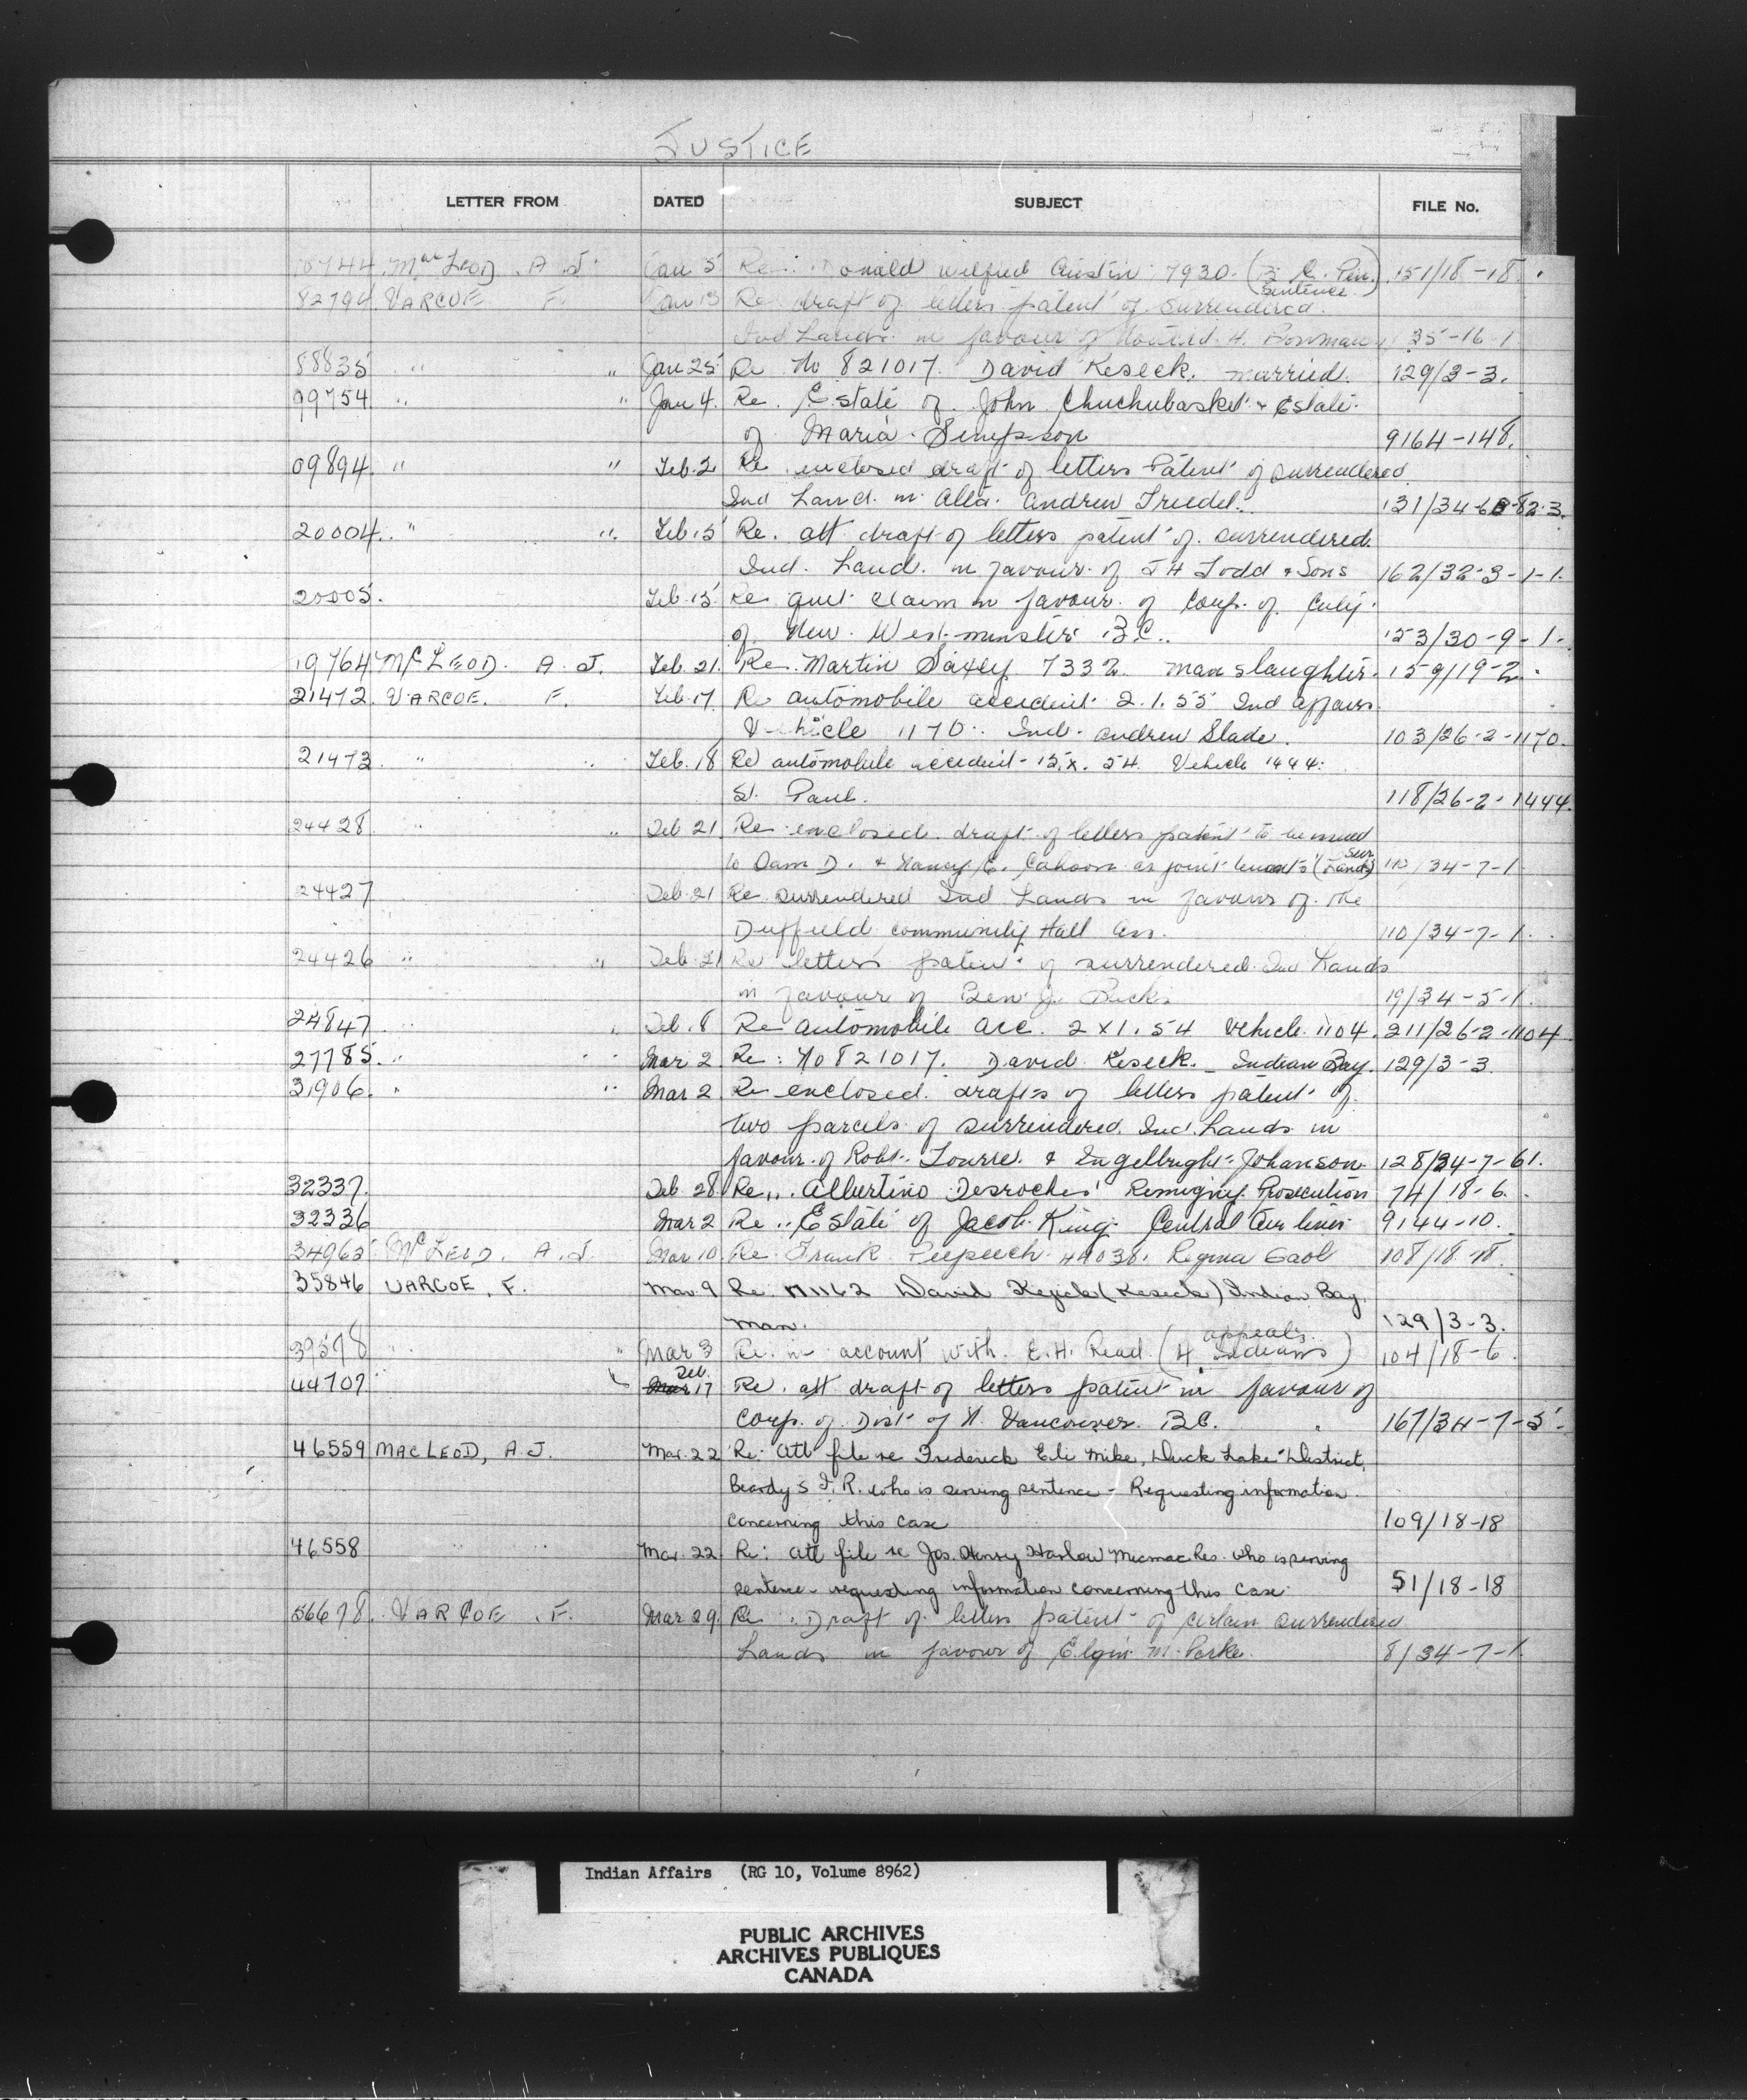 JUSTICE
LETTER FROM DATED SUBJECT FILE No.
10744 MacLEOD. A J. Jan 5 Re: Donald Wilfred Austin 7930. (B. C. Pen. sentence) 151/18-18.
82794 VARCOE F. Jan 13 Re draft of letters patent of surrendered
Ind Lands in favour of H. Bowman 35-16-1
88835 " " Jan 25 Re No 821017. David Keseck. married. 129/3-3.
99754 " " Jan 4. Re. Estate of John Chuchubasket & Estate
of Maria Simpson 9164-148.
09894. " " Feb. 2 Re enclosed draft of letters Patent of surrendered
Ind Land. in Alta. Andrew Friedel. 131/34-
20004. " " Feb. 15 Re. att draft of letters patent of surrendered
Ind. Land. in favour of J H Todd & Sons 162/32-3-1-1.
20005. Feb. 15 Re quit claim in favour of Corp. of City
of New Westminster B.C. 153/30-9-1.
19764 McLEOD. A. J. Feb. 21. Re. Martin Saxey 7332 manslaughter. 159/19-2.
21472. VARCOE. F. Feb. 17 Re automobile accident 2.1.55 Ind affairs
Vehicle 1170. Ind. Andrew Slade. 103/26-2-1170.
21473 " " Feb. 18 Re automobile accident - 15.x.54. Vehicle 1444.
St. Paul. 118/26-2-1444.
24428 " " Feb 21 Re enclosed draft of letters patent to be issued
to Dam D. & Nancy E. Cahoon as joint tenants (Sur Lands) 110/34-7-1
24427 Feb. 21 Re surrendered Ind Lands in favour of the
Duffield community Hall Ass. 110/34-7-1.
24426 " " Feb. 21 Re letters patent of surrendered Ind Lands
in favour of Ben J. 19/34-5-1.
24847 " " Feb. 8 Re automobile acc. 2 X1.54 Vehicle 1104. 211/26-2-1104
27785. " " Mar 2 Re: No 821017. David Keseck. - Indian Bay. 129/3-3.
31906. " " Mar 2 Re enclosed drafts of letters patent of
two parcels of surrendered Ind. Lands in
favour of Robt. & Engelbright Johanson. 128/34-7-61.
32337. Feb. 28 Re. Albertino Desroches' Remigny Prosecution 74/18-6.
32336 Mar 2 Re. Estate of Jacob King. Central Air lines 9144-10.
34965 McLEOD, A. J. Mar 10 Re Frank Peepeech 44036. Regina Gaol 108/18-18.
35846 VARCOE, F. Mar. 9 Re. 171162 David Kejick (Keseck) Indian Bay
Man. 129/3-3.
39578 " " Mar 3 Re. in account with. E.H. Read. (4 Indians appeals) 104/18-6.
44707 " Feb. 17 Re. att draft of letters patent in favour of
Corp. of Dist of N. Vancouver. B.C. 167/34-7-5.
46559 MACLEOD, A.J. Mar. 22 Re: att file re Frederick Eli Mike, Duck Lake District,
Beardy's I. R. who is serving sentence - Requesting information
concerning this case 109/18-18
46558 Mar. 22 Re: att file re Jos. Henry Harlow Micmac Res. who is serving
sentence - requesting information concerning this case. 51/18-18
56678. VARCOE, F. Mar 29. Re: Draft of letters patent of certain surrendered
Lands in favour of Elgin M. Parke. 8/34-7-1.
Indian Affairs (RG 10, Volume 8962)
PUBLIC ARCHIVES
ARCHIVES PUBLIQUES
CANADA